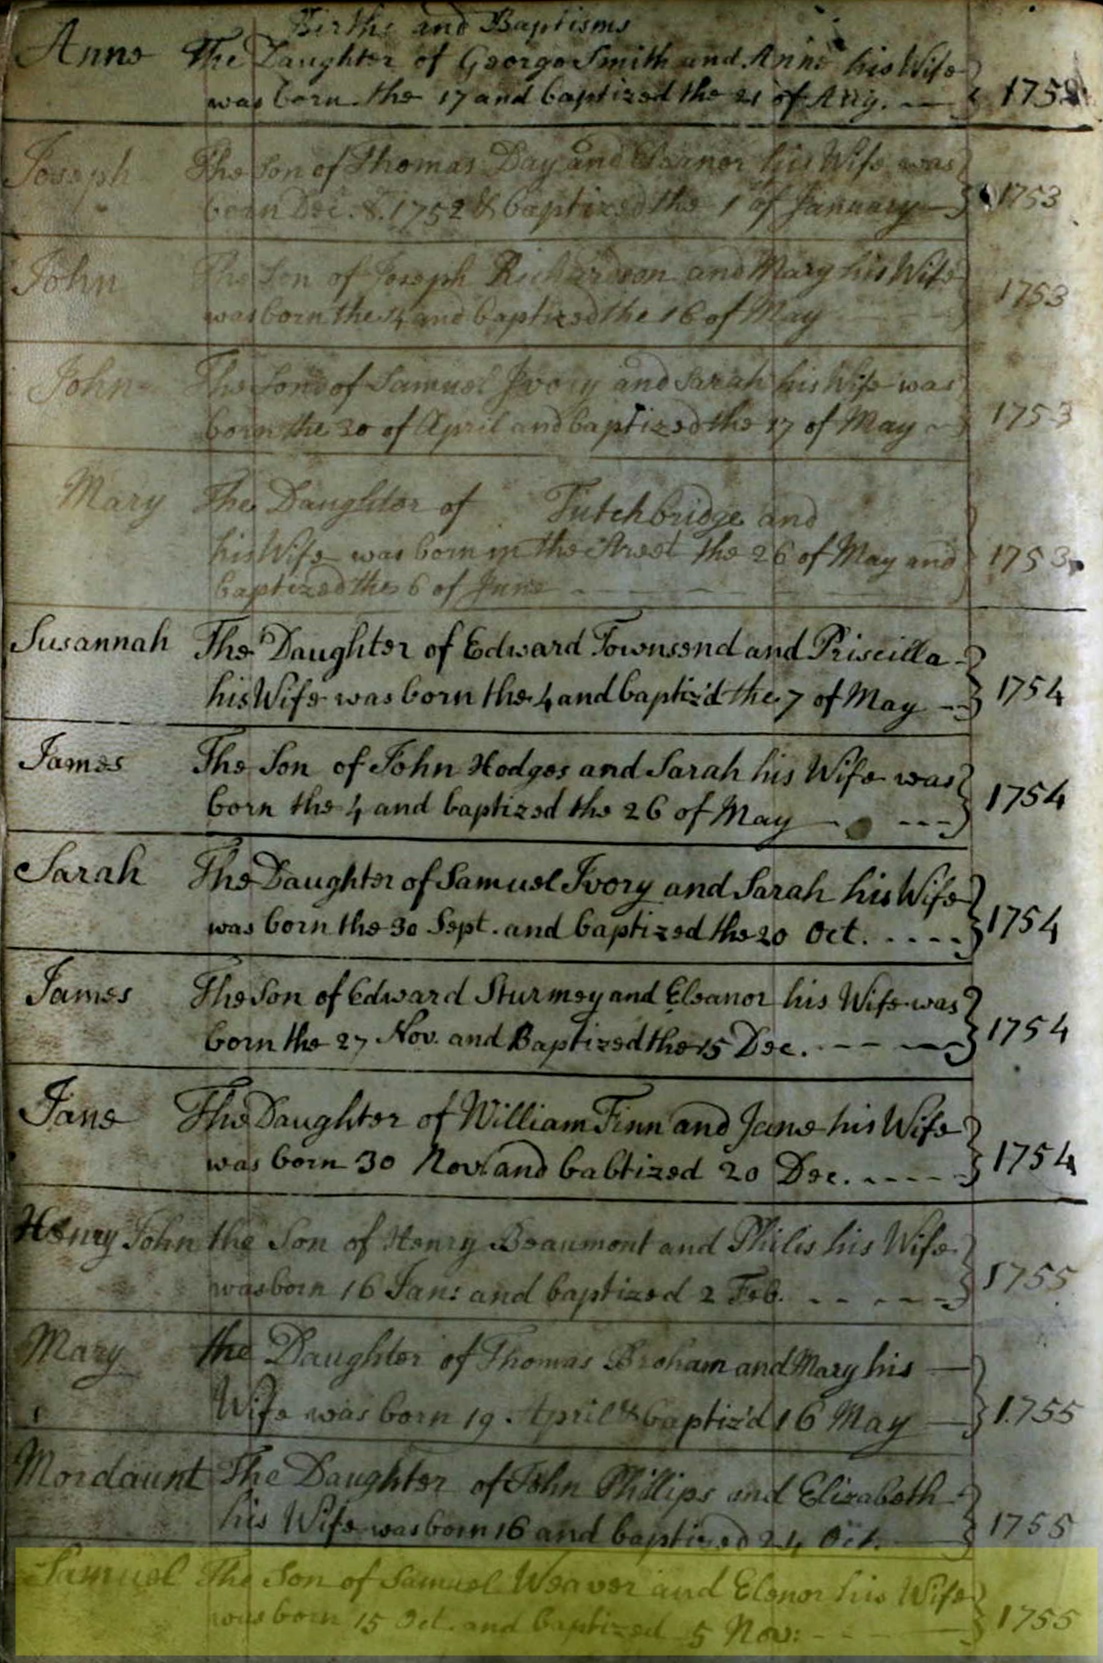 Births and Baptisms
Anne The Daughter of George Smith and Anne his Wife
was born the 17 and baptized the 21 of Aug. 1752
Joseph The Son of Thomas Day and Eleanor his Wife was
born Dec. 8. 1752 & baptized the 1st of January 1753
John The Son of Joseph Richardson and Mary his Wife
was born the 4 and baptized the 16 of May 1753
John The Son of Samuel Ivory and Sarah his Wife was
born the 20 of April and baptized the 17 of May 1753
Mary The Daughter of Tutchbridge and
his Wife was born in the Street the 26 of May and 1753
baptized the 6 of June
Susannah The Daughter of Edward Townsend and Priscilla
his Wife was born the 4 and baptiz'd the 7 of May 1754
James The Son of John Hodges and Sarah his Wife was
born the 4 and baptized the 26 of May 1754
Sarah The Daughter of Samuel Ivory and Sarah his Wife
was born the 30 Sept. and baptized the 20 Oct. 1754
James The Son of Edward Sturmey and Eleanor his Wife was
born the 27 Nov. and Baptized the 15 Dec. 1754
Jane The Daughter of William Finn and Jane his Wife
was born 30 Nov. and babtized 20 Dec. 1754
Henry John the Son of Henry Beaumont and Philis his Wife
was born 16 Jan: and baptized 2 Feb. 1755
Mary the Daughter of Thomas Broham and Mary his
Wife was born 19 April & baptiz'd 16 May 1755
Mordaunt The Daughter of John Phillips and Elizabeth
his Wife was born 16 and baptized 24 Oct. 1755
Samuel The Son of Samuel Weaver and Elenor his Wife
was born 15 Oct. and baptized 5 Nov: 1755